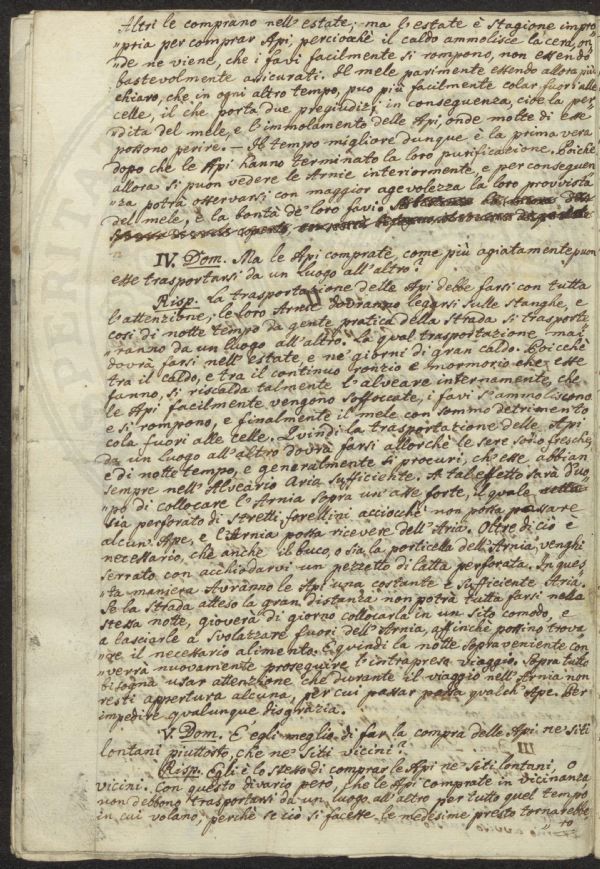 Altri le comprano nell'estate, ma l'estate è stagione impro„
„pria per comprar Api, perciocchè il caldo ammolisce la cera, on„
„de ne viene, che i favi facilmente si rompono, non essendo
bastevolmente assicurati. Il mele parimente essendo allora più
chiaro, che in ogni altro tempo, può più facilmente colar fuori alle
celle, il che porta due pregiudizj in conseguenza, cioè la per„
„dita del mele, e l'immolamento delle Api, onde molte di esse
possono perire. — Il tempo migliore dunque è la prima vera
dopo che le Api hanno terminato la loro purificazione. Poichè
allora si puon vedere le Arnie interiormente, e per conseguen
„za potrà osservarsi con maggior agevolezza la loro provvista
del mele, e la bontà de' loro favi.
IV. Dom. Ma le Api comprate, come più agiatamente puon
esse trasportarsi da un luogo all'altro?
Risp. La trasportazione delle Api debbe farsi con tutta
l'attenzione; le loro Arnie dovranno legarsi sulle stanghe, e
così di notte tempo da gente pratica della strada si trasporte„
„ranno da un luogo all'altro. La qual trasportazione mai
dovrà farsi nell'estate e nè giorni di gran caldo. Poicchè
tra il caldo, e tra il continuo ronzio e mormorio che esse
fanno, si riscalda talmente l'alveare internamente, che
le Api facilmente vengono soffoccate, i favi s'ammoliscono
e si rompono, e finalmente il mele con sommo detrimento
cola fuori alle celle. Quindi la trasportazione delle Api
da un luogo all'altro dovrà farsi allorchè le sere sono fresche,
e di notte tempo, e generalmente si procuri, ch'esse abbian
sempre nell'Alveario Aria sufficiente. A tal effetto sarà d'uo„
„po di collocare l'Arnia sopra un'asse forte, il quale
sia perforato di stretti forellini acciocchè non possa passare
alcun'Ape, e l'Arnia possa ricevere dell'Aria. Oltre di ciò è
necessario, che anche il buco, o sia la porticella dell'Arnia, venghi
serrato con acchiodarvi un pezzetto di latta perforata. In ques„
„ta maniera avranno le Api una costante e sufficiente Aria.
Se la strada atteso la gran distanza non potrà tutta farsi nella
stessa notte, gioverà di giorno collocarla in un sito comodo, e
a lasciarle a svolazzare fuori dell'Arnia, affinchè possino trova„
„re il necessario alimento. E quindi la notte sopraveniente con„
„verrà nuovamente proseguire l'intrapreso viaggio. Sopra tutto
bisogna usar attenzione che durante il viaggio nell'Arnia non
resti appertura alcuna, per cui passar possa qualch'Ape. Per
impedire qualunque disgrazia.
V. Dom. È egli meglio di far la compra delle Api ne' siti
lontani piuttosto, che ne' siti vicini?
Risp. Egli è lo stesso di comprar le Api ne' siti lontani, o
vicini. Con questo divario però, che le Api comprate in vicinanza
non debbono trasportarsi da un luogo all'altro per tutto quel tempo
in cui volano, perchè se ciò si facesse le medesime presto tornarebbe„